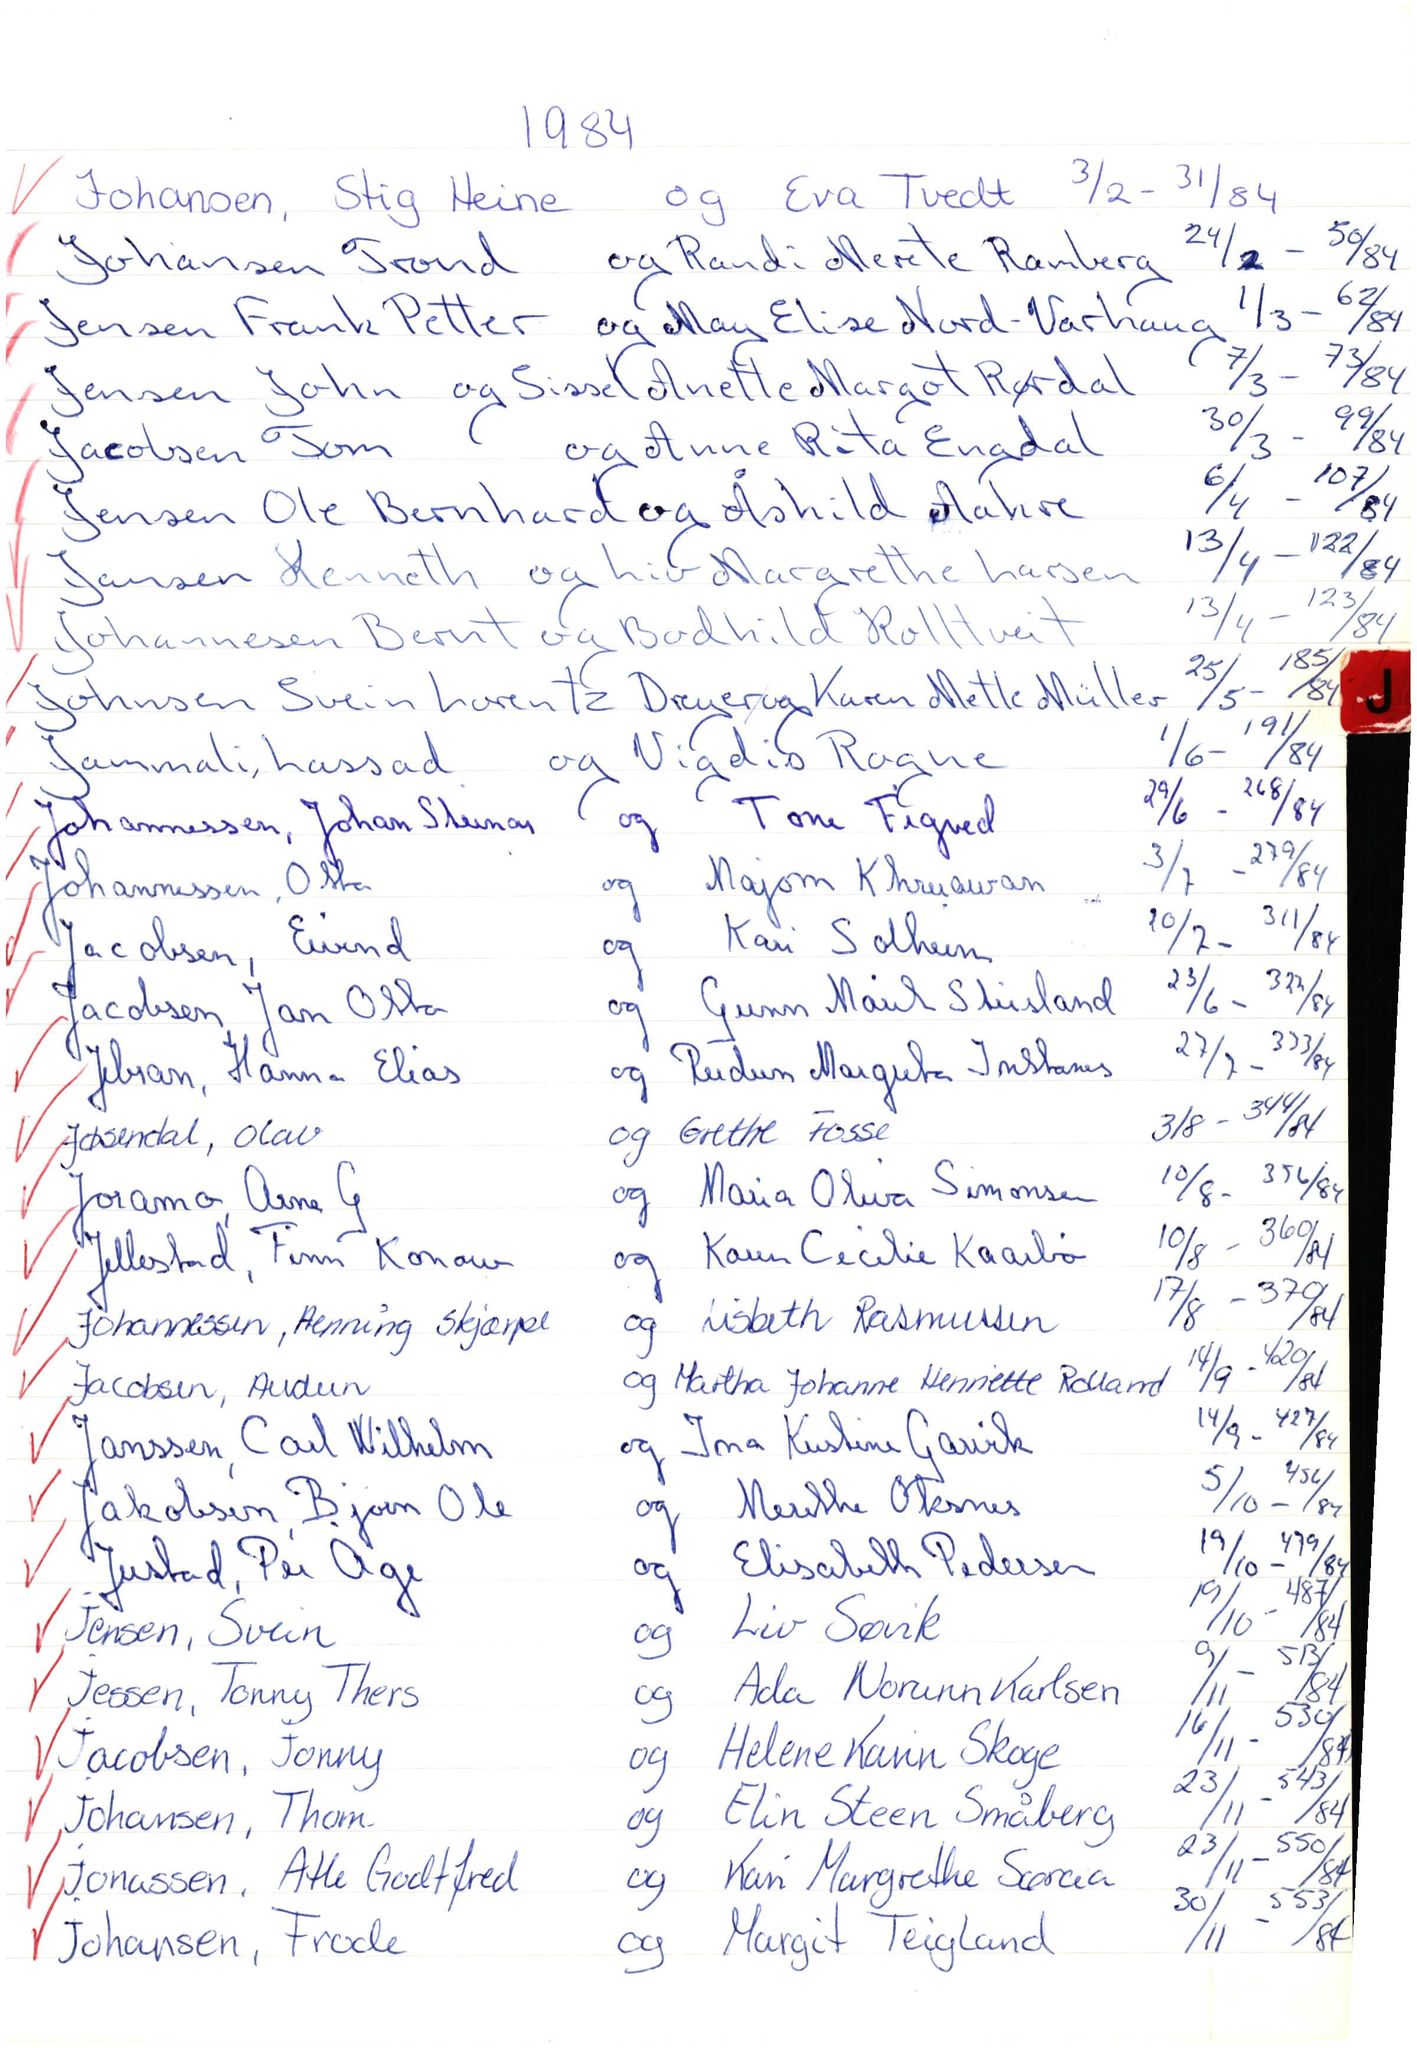 1984
Johansen, Stig Heine og Eva Tvedt 3/2 - 31/84
Johansen Trond og Randi Merete Ramberg 24/2 - 50/84
Jensen Frank Petter og May Elise Nord-Varhaug 1/3 - 62/84
Jensen John og Sissel Anette Margot Rørdal 7/3 - 73/84
Jacobsen Tom og Anne Rita Engdal 30/3 - 99/84
Jensen Ole Bernhard og Åshild Aakre 6/4 - 107/84
Jansen Kenneth og Liv Margrethe Larsen 13/4 - 122/84
Johannesen Bernt og Bodhild Rolltveit 13/4 - 123/84
Johnsen Svein Lorentz Dreyer og Karen Mette Müller 25/5 - 185/84
Jammali, Lassad og Vigdis Ragne 1/6 - 191/84
Johannessen, Johan Steinar og Tone Figved 29/6 - 268/84
Johannessen, Otto og Majom Khruawan 3/7 - 279/84
Jacobsen, Eivind og Kari Solheim 20/7 - 311/84
Jacobsen, Jan Otto og Gunn Marit Stusland 23/6 - 322/84
Jebran, Hanna Elias og Reidun Margreta Instanes 27/7 - 333/84
Jøsendal, Olav og Grethe Fosse 3/8 - 344/84
Joramo, Arne G og Maria Oliva Simonsen 10/8 - 356/84
Jellestad, Finn Konow og Karen Cecilie Kaarbø 10/8 - 360/84
Johannessen, Henning Skjærpe og Lisbeth Rasmussen 17/8 - 370/84
Jacobsen, Audun og Martha Johanne Henriette Rolland 14/9 - 420/84
Janssen, Carl Wilhelm og Ina Kristine Garvik 14/9 - 427/84
Jakobsen, Bjørn Ole og Merethe Oksnes 5/10 - 456/84
Justad, Per Åge og Elisabeth Pedersen 19/10 - 479/84
Jensen, Svein og Liv Søvik 19/10 - 487/84
Jessen, Tonny Thers og Ada Norunn Karlsen 9/11 - 513/84
Jacobsen, Jonny og Helene Karin Skoge 16/11 - 530/84
Johansen, Thom og Elin Steen Småberg 23/11 - 543/84
Jonassen, Atle Godtfred og Kari Margrethe 23/11 - 550/84
Johansen, Frode og Margit Teigland 30/11 - 553/84
J